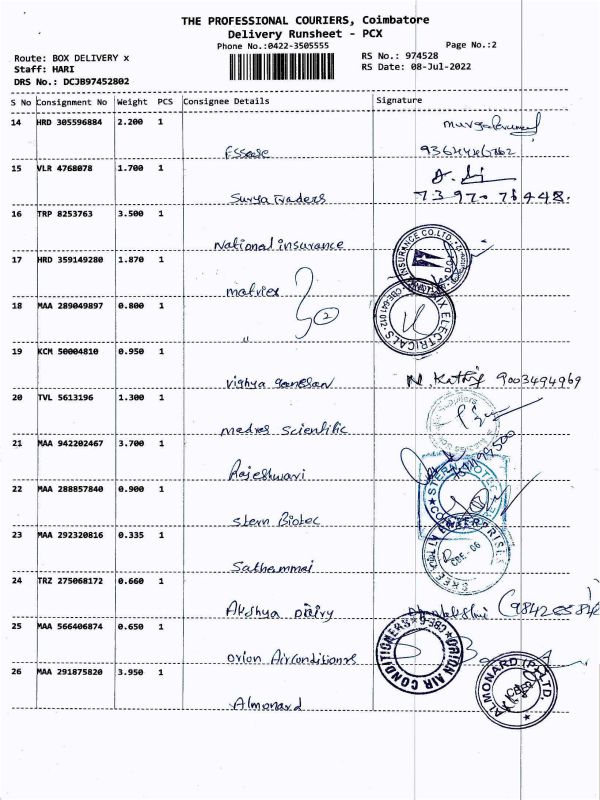 THE PROFESSIONAL COURIERS, Coimbatore
Delivery Runsheet - PCX
Phone No.:0422-3505555
Page No.:2
Route: BOX DELIVERY x
RS No.: 974528
Staff: HARI
RS Date: 08-Jul-2022
DRS No.: DCJB97452802
S No Consignment No Weight PCS Consignee Details Signature
14 HRD 305596884 2.200 1
Essae
15 VLR 4768078 1.700 1
Surya Traders 73970 76448.
16 TRP 8253763 3.500 1
National insurance
INSURANCE CO.LTD.
17 HRD 359149280 1.870 1
matries
18 MAA 289049897 0.800 1
" 2
ELECTRICALS
CBE-641 012
19 KCM 50004810 0.950 1
vighya ganesan N. Kathir 9003494969
20 TVL 5613196 1.300 1
medres scientific
21 MAA 942202467 3.700 1
Rajeshwari
22 MAA 288857840 0.900 1
Stern Biotec
STERN BIOTEC
23 MAA 292320816 0.335 1
Sathammai
ENTERPRISES
CBE-06
24 TRZ 275068172 0.660 1
Akshya Dairy
25 MAA 566406874 0.650 1
Orion Airconditionrs
ORION AIR CONDITIONERS
CBE-9
26 MAA 291875820 3.950 1
Almonard
ALMONARD (P) LTD.